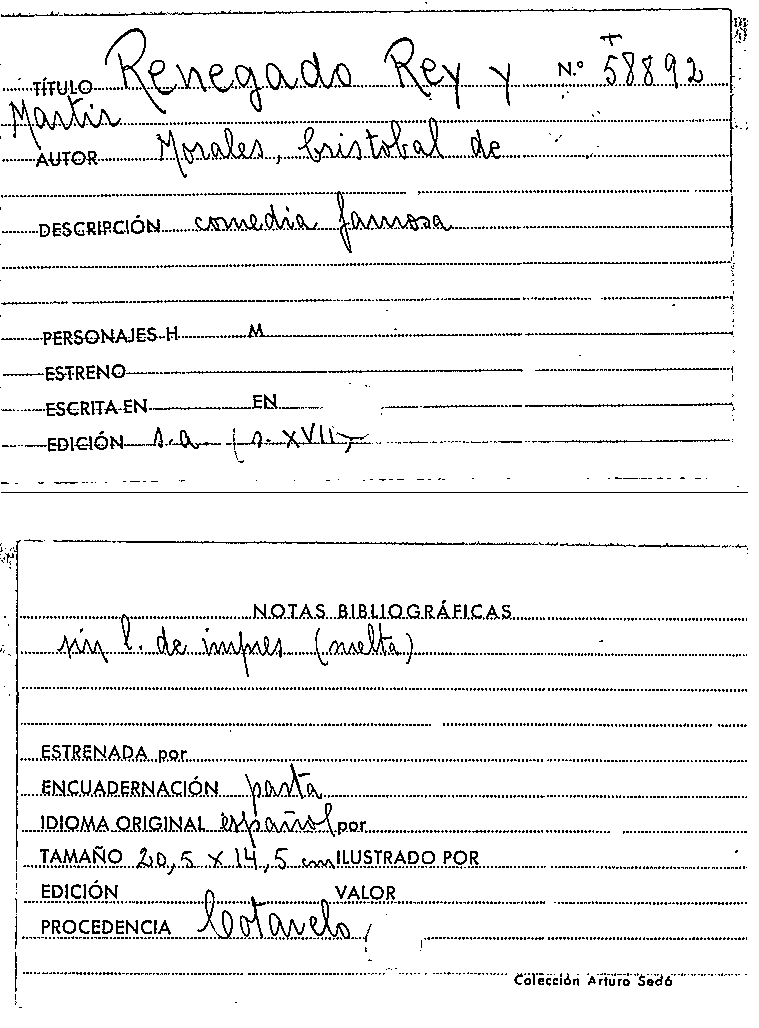 TÍTULO Renegado Rey y N.º 58892
Martir
AUTOR Morales, Cristobal de
DESCRIPCIÓN comedia famosa
PERSONAJES H M
ESTRENO
ESCRITA EN EN
EDICIÓN s.a (s. XVII)
NOTAS BIBLIOGRÁFICAS
sin l. de impres (suelta)
ESTRENADA por
ENCUADERNACIÓN pasta
IDIOMA ORIGINAL español por
TAMAÑO 20,5 x 14,5 cm ILUSTRADO POR
EDICIÓN VALOR
PROCEDENCIA Cotarelo
Colección Arturo Sedó